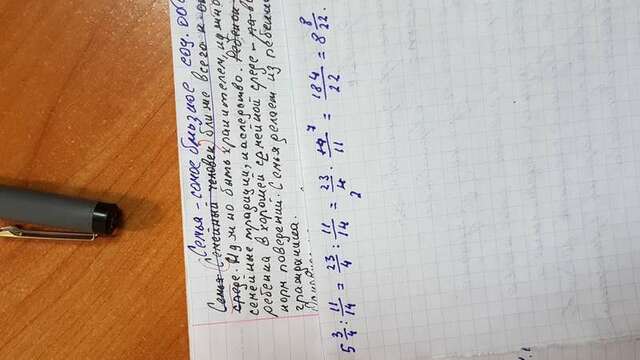 Семья - самое близкое соц. об
Семья (Семейный человек) ближе всего к
среде. Нужно быть хранителем, нужно
семейные традиции, наследство. Ребенок
ребенка в хорошей семейной среде - на
норм поведений. Семья делает из ребенка
гражданина.
5 3/4 : 11/14 = 23/4 : 11/14 = 23/4 2 · 14 7/11 = 184/22 = 8 8/22.